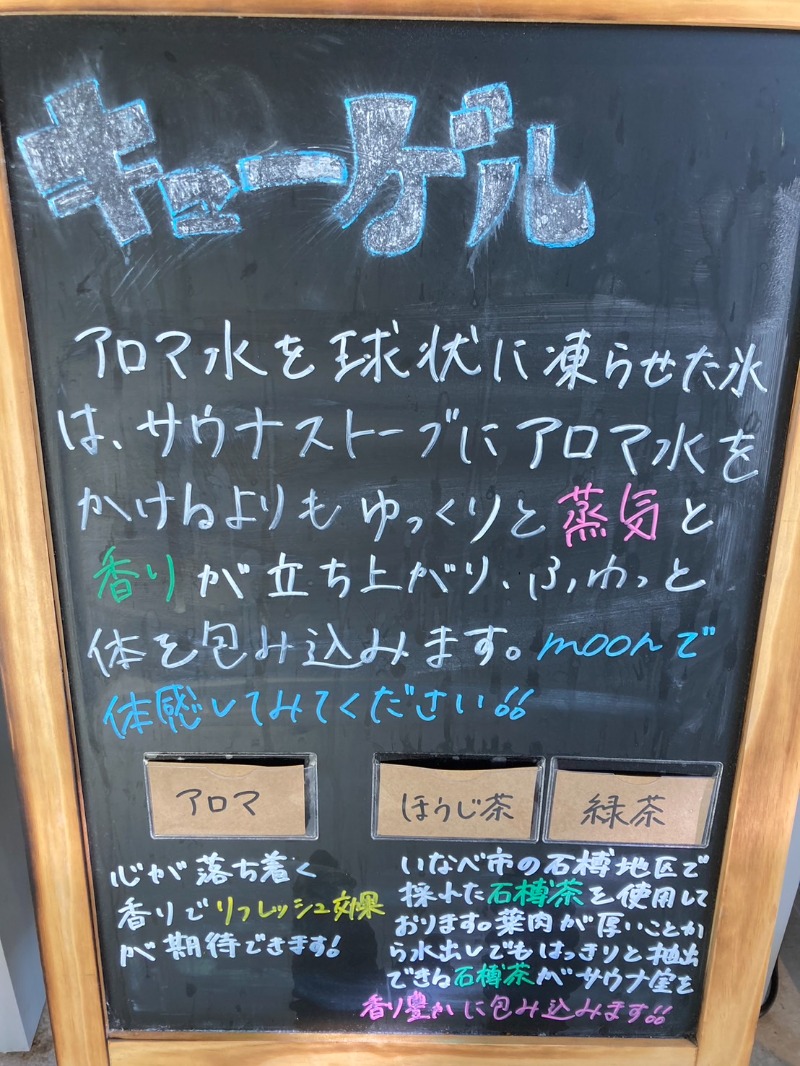 キューゲル
アロマ水を球状に凍らせた氷
は、サウナストーブにアロマ水を
かけるよりもゆっくりと蒸気と
香りが立ち上がり、ふゆっと
体を包み込みます。moonで
体感してみてください!!
アロマ
心が落ち着く
香りでリフレッシュ効果
が期待できます!
ほうじ茶
緑茶
いなべ市の石榑地区で
採れた石榑茶を使用して
おります。葉肉が厚いことか
ら水出しでもはっきりと抽出
できる石榑茶がサウナ室を
香り豊かに包み込みます!!